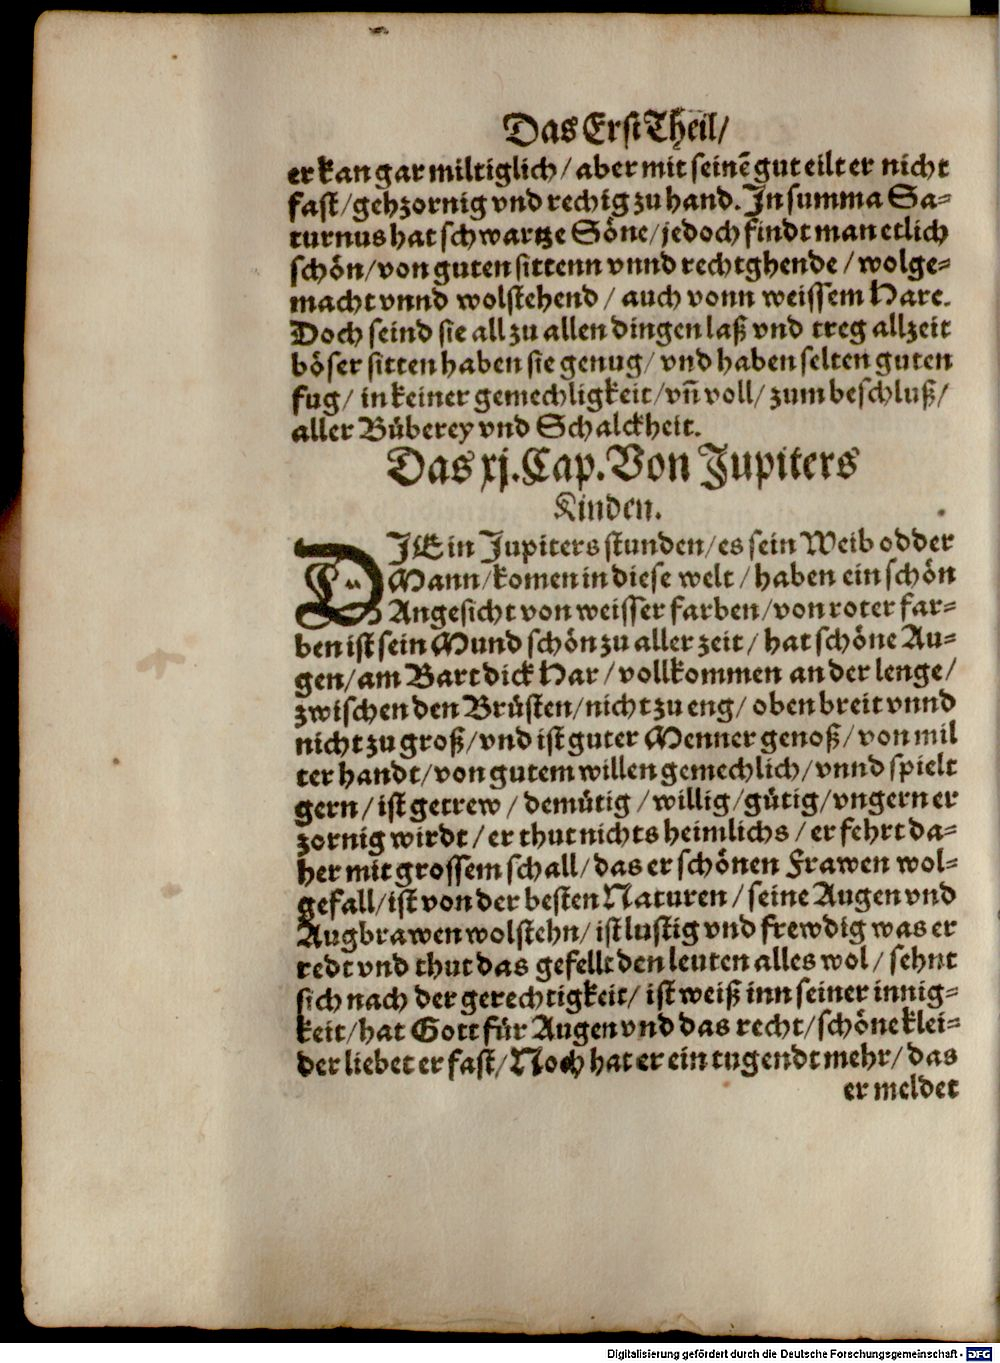 Das Erst Theil/
er kan gar miltiglich/ aber mit seinē gut eilt er nicht
fast/ gehzornig vnd rechig zu hand. In summa Sa-
turnus hat schwartze Söne/ jedoch findt man etlich
schön/ von guten sittenn vnnd rechtghende/ wolge-
macht vnnd wolstehend/ auch vonn weissem Hare.
Doch seind sie all zu allen dingen laß vnd treg allzeit
böser sitten haben sie genug/ vnd haben selten guten
fug/ in keiner gemechligkeit/ vn̄ voll/ zum beschluß/
aller Büberey vnd Schalckheit.
Das xj. Cap. Von Jupiters
Kinden.
DJE in Jupiters stunden/ es sein Weib odder
Mann/ komen in diese welt/ haben ein schön
Angesicht von weisser farben/ von roter far-
ben ist sein Mund schön zu aller zeit/ hat schöne Au-
gen/ am Bart dick Har/ vollkommen an der lenge/
zwischen den Brüsten/ nicht zu eng/ oben breit vnnd
nicht zu groß/ vnd ist guter Menner genoß/ von mil
ter handt/ von gutem willen gemechlich/ vnnd spielt
gern/ ist getrew/ demütig/ willig/ gütig/ vngern er
zornig wirdt/ er thut nichts heimlichs/ er fehrt da-
her mit grossem schall/ das er schönen Frawen wol-
gefall/ ist von der besten Naturen/ seine Augen vnd
Augbrawen wolstehn/ ist lustig vnd frewdig was er
redt vnd thut das gefellt den leuten alles wol/ sehnt
sich nach der gerechtigkeit/ ist weiß inn seiner innig-
keit/ hat Gott für Augen vnd das recht/ schöne klei-
der liebet er fast/ Noch hat er ein tugendt mehr/ das
er meldet
Digitalisierung gefördert durch die Deutsche Forschungsgemeinschaft - DFG